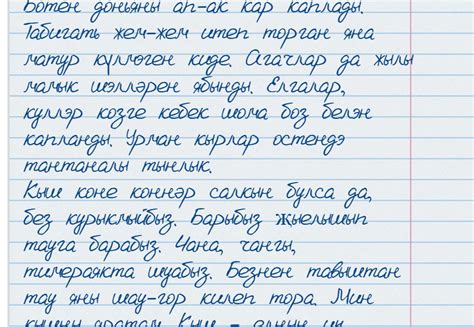 Ботен доньяны ап-ак кар каплады.
Табигать жем-жем итеп торган яна
матур күлмәген киде. Агачлар да жылы
мамык шәлләрен ябынды. Елгалар,
куллэр козге кебек шома боз белэн
капланды. Урман кырлар остендэ
тантаналы тынлык.
Кыш коне коннәр салкын булса да,
без курыкмыйбыз. Барыбыз җыелышып
тауга барабыз. Чана, чангы,
тимераякта шуабыз. Безнен тавыштан
тау яны шау-гор килеп тора. Мин
кышны яратам. Кыш -